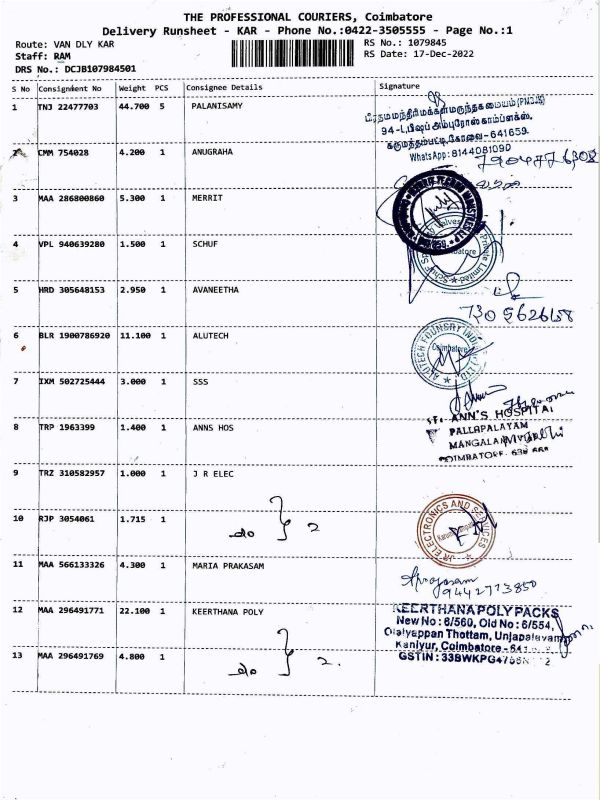 THE PROFESSIONAL COURIERS, Coimbatore
Delivery Runsheet - KAR - Phone No.:0422-3505555 - Page No.:1
Route: VAN DLY KAR
RS No.: 1079845
Staff: RAM
RS Date: 17-Dec-2022
DRS No.: DCJB107984501
S No Consignment No Weight PCS Consignee Details Signature
1 TNJ 22477703 44.700 5 PALANISAMY
94-L, பிஷப் அம்புரோஸ் காம்ப்ளக்ஸ்,
கருமத்தம்பட்டி, கோவை - 641659.
WhatsApp: 8144081090
2 CMM 754028 4.200 1 ANUGRAHA
3 MAA 286800860 5.300 1 MERRIT
4 VPL 940639280 1.500 1 SCHUF
Private Limited
5 HRD 305648153 2.950 1 AVANEETHA
6 BLR 1900786920 11.100 1 ALUTECH
ALUTECH FOUNDRY
Coimbatore
7 IXM 502725444 3.000 1 SSS
8 TRP 1963399 1.400 1 ANNS HOS
ST. ANN'S HOSPITAL
PALLAPALAYAM
9 TRZ 310582957 1.000 1 J R ELEC
10 RJP 3054061 1.715 1
do } 2
JR ELECTRONICS AND SERVICES
11 MAA 566133326 4.300 1 MARIA PRAKASAM
9442713850
12 MAA 296491771 22.100 1 KEERTHANA POLY
KEERTHANA POLY PACKS
New No : 6/560, Old No : 6/554,
Thottam, Unjapalayam
Kaniyur, Coimbatore
GSTIN : 33BWKPG4
13 MAA 296491769 4.800 1
do } 2.